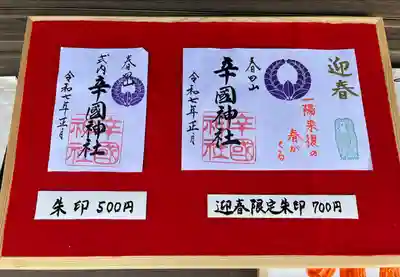 春日山
式内 辛國神社
令和七年正月
迎春
一陽来復の
春が
くる
春日山
辛國神社
令和七年正月
朱印 500円
迎春限定朱印 700円